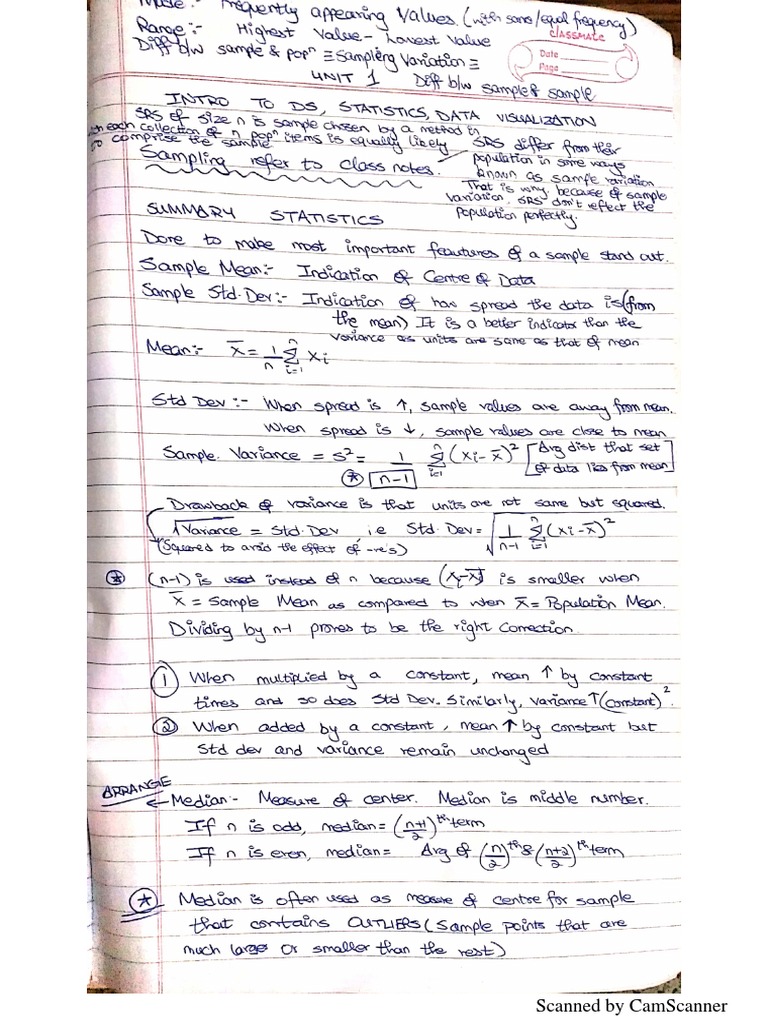 Mode:- Frequently appearing Values. (with same/equal frequency)
Range:- Highest Value - Lowest Value
Diff b/w sample & popⁿ ≡ Sampling Variation ≡
Diff b/w sample & sample
CLASSMATE
Date
Page
UNIT 1
INTRO TO DS, STATISTICS, DATA VISUALIZATION
SRS of size n is sample chosen by a method in
each collection of n popⁿ items is equally likely
to comprise the sample
Sampling refer to class notes.
SRS differ from their
population in some ways
known as sample variation
That is why, because of sample
variation, SRS don't reflect the
population perfectly.
SUMMARY STATISTICS
Done to make most important feautures of a sample stand out.
Sample Mean:- Indication of Centre of Data
Sample Std. Dev:- Indication of how spread the data is (from
the mean) It is a better indicator than the
variance as units are same as that of mean
Mean:- x̄ = 1/n Σⁿᵢ₌₁ xᵢ
Std Dev:- When spread is ↑, sample values are away from mean.
When spread is ↓, sample values are close to mean
Sample Variance = S² = 1/(n-1) Σⁿᵢ₌₁ (xᵢ - x̄)² [Avg dist that set of data lies from mean]
Drawback of variance is that units are not same but squared.
√Variance = Std. Dev, i.e Std. Dev = √(1/(n-1) Σⁿᵢ₌₁ (xᵢ - x̄)²)
(Squared to avoid the effect of -re's)
(n-1) is used instead of n because (xᵢ - x̄) is smaller when
x̄ = Sample Mean as compared to when x̄ = Population Mean.
Dividing by n-1 proves to be the right correction
① When multiplied by a constant, mean ↑ by constant
times and so does Std Dev. Similarly, variance ↑ (constant)².
② When added by a constant, mean ↑ by constant but
Std dev and variance remain unchanged
ARRANGE
← Median:- Measure of center. Median is middle number.
If n is odd, median = (n+1/2)ᵗʰ term
If n is even, median = Avg of (n/2)ᵗʰ & (n+2/2)ᵗʰ term
Median is often used as measure of centre for sample
that contains OUTLIERS (Sample points that are
much large or smaller than the rest)
Scanned by CamScanner